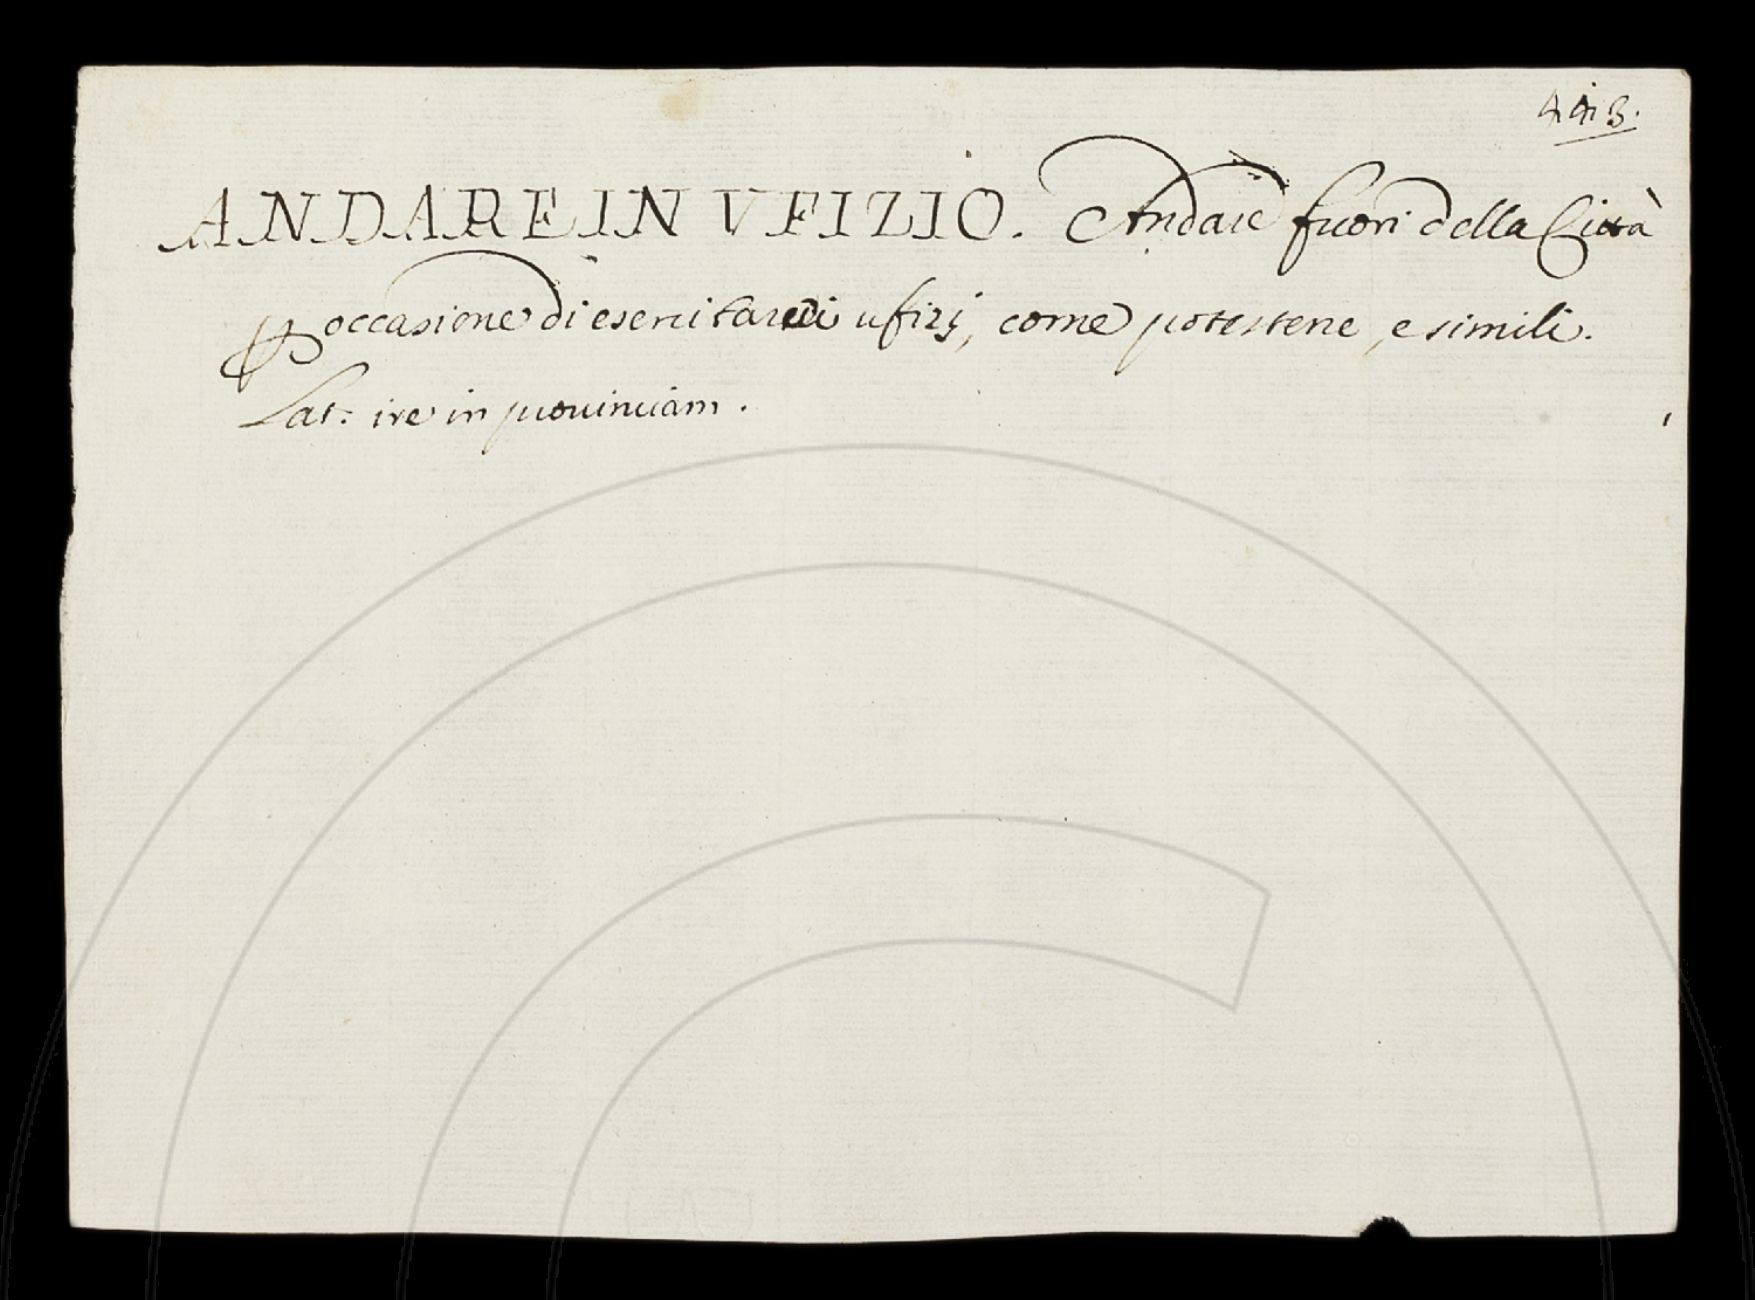 443.
ANDARE IN VFIZIO. Andare fuori della Città
p occasione di esercitare ufizj, come potesterie, e simili.
Lat: ire in prouinciam.